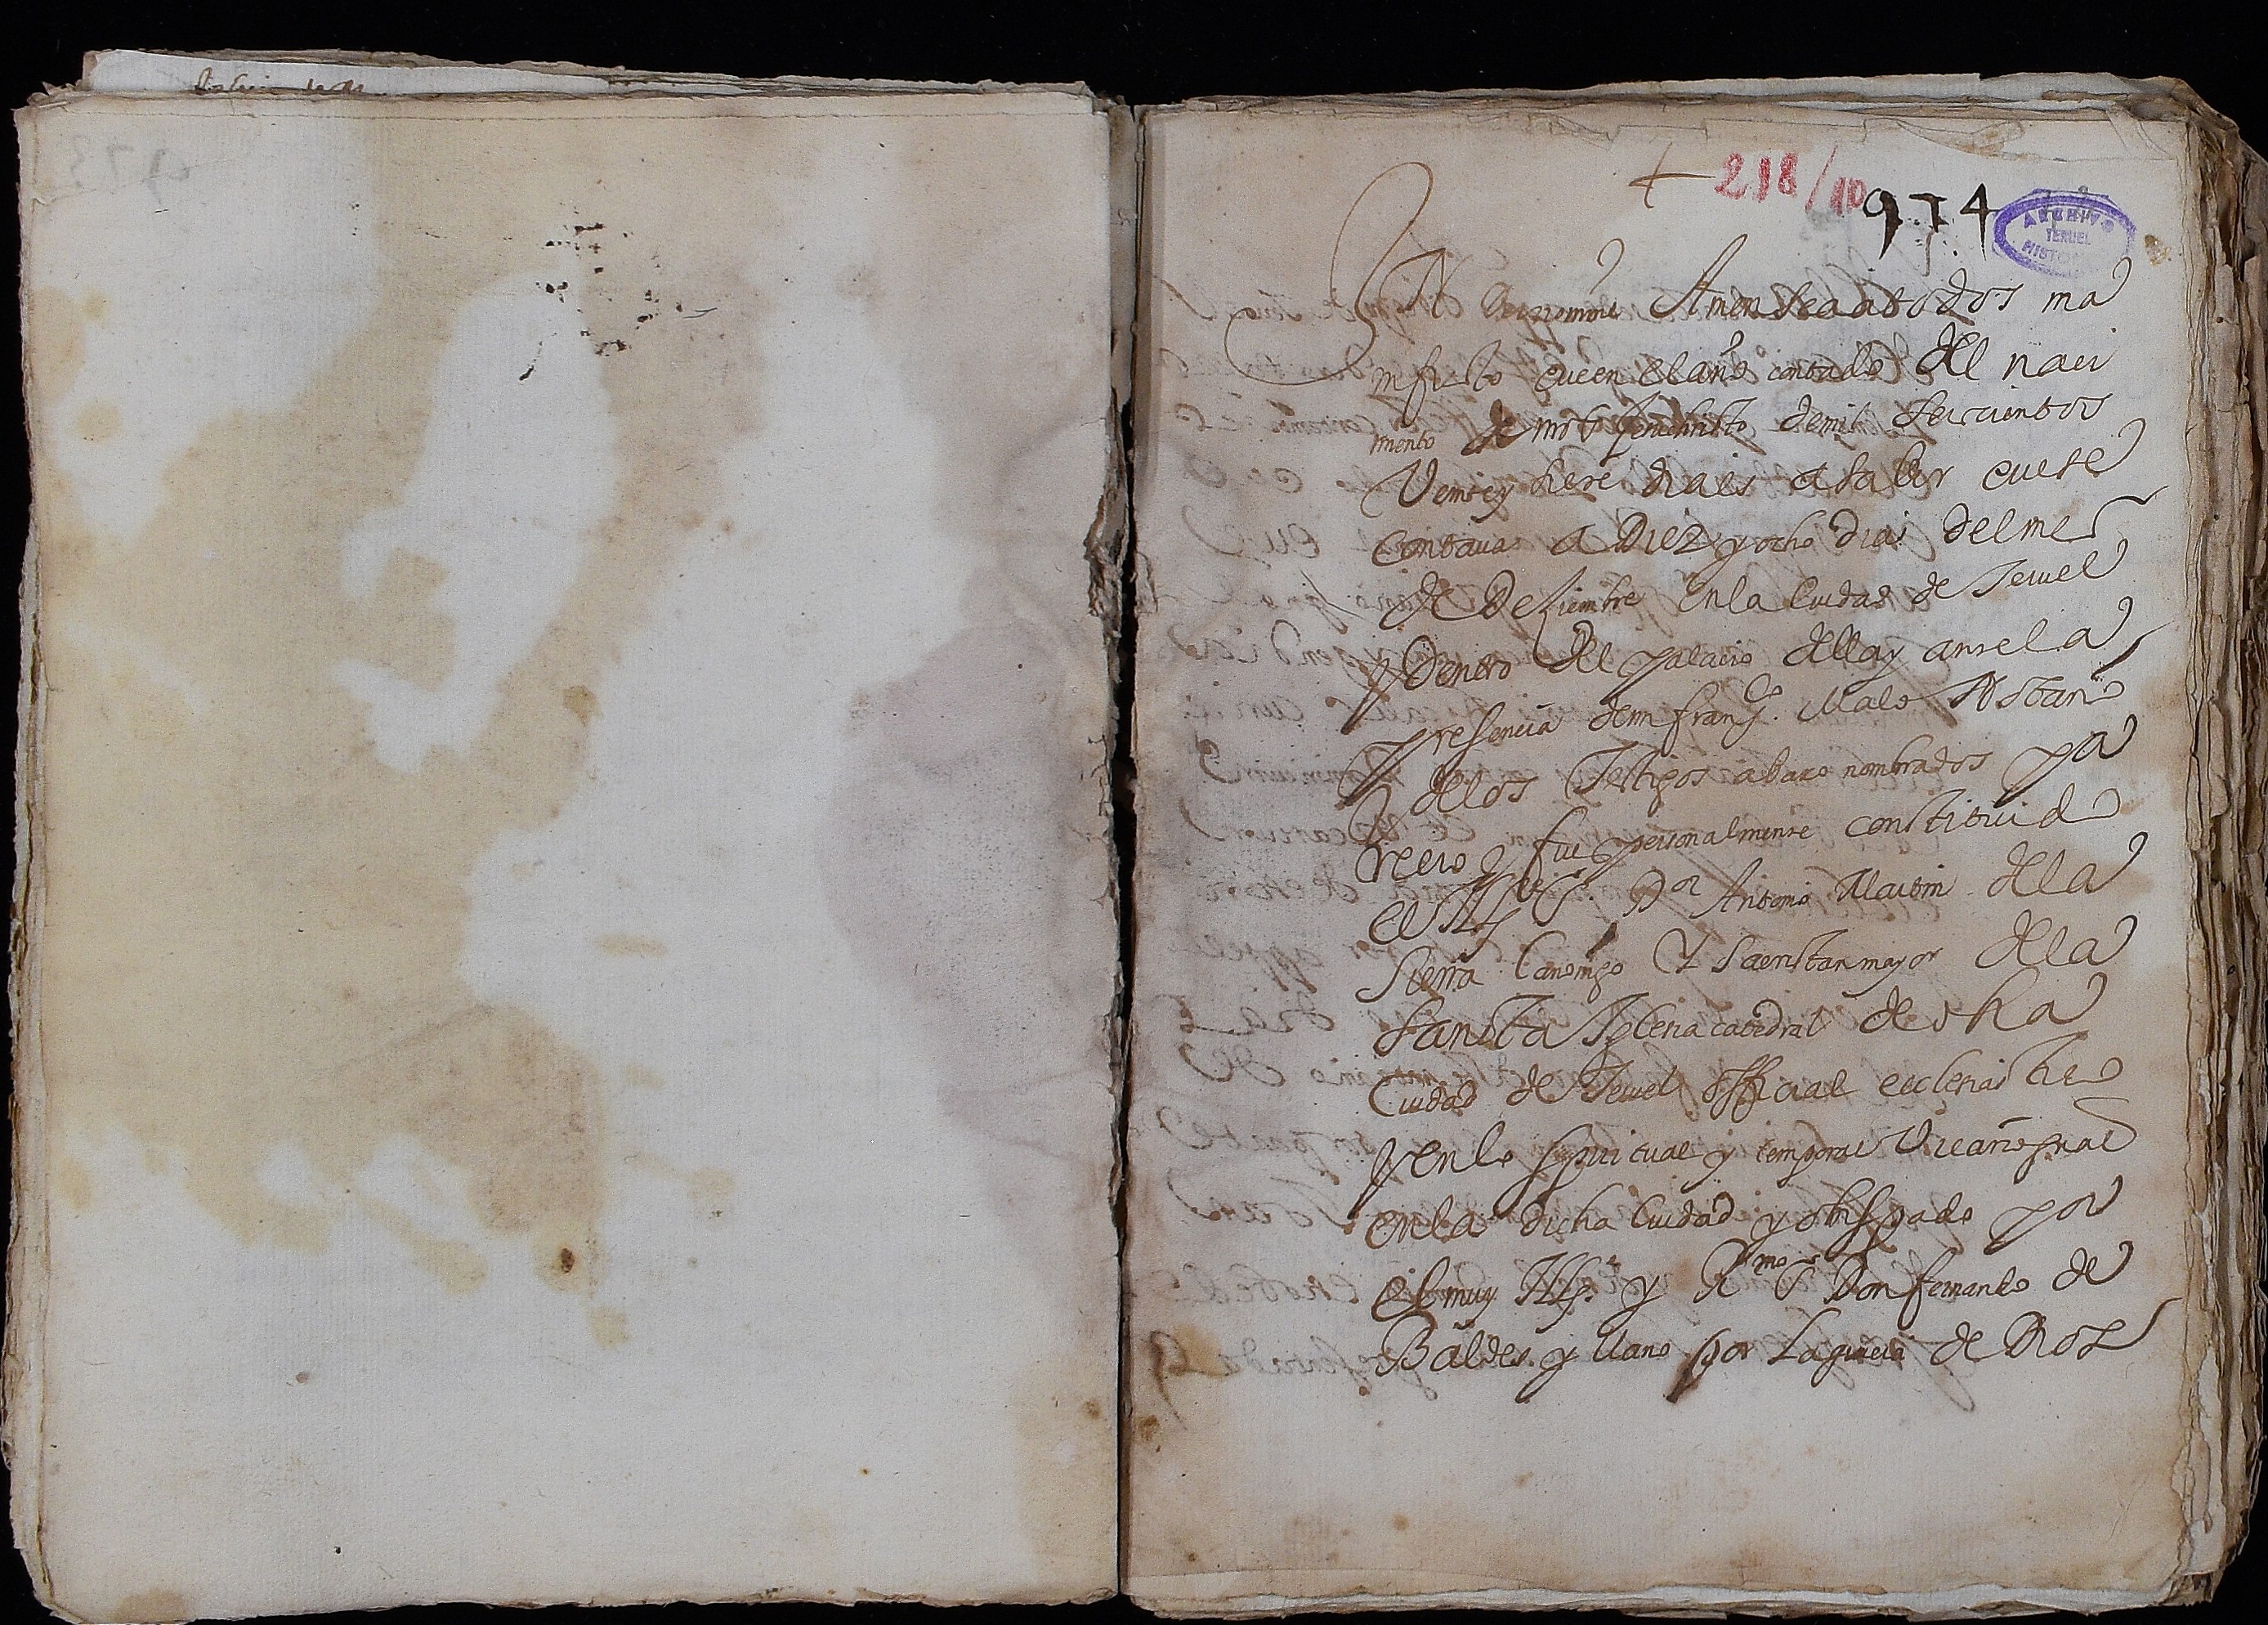 + 218/10
974
ARCHIVO
TERUEL
HISTO
IN Dei nomine Amen sea a todos ma
nifiesto que en el año contado del naci
miento de nro Sr Jesuchristo de mil seiscientos
Veinte y siete dia es a saber que se
contaua a Diez y ocho dias del mes
de Deziembre en la Ciudad de Teruel
y Dentro del palacio della y ante la
presencia de mi Franco. Malo Notario
y de los Testigos abaxo nombrados pa
recio y fue personalmente constituido
el Ille Sr. Dor Antonio Martin de la
Sierra Canonigo Y Sacristan mayor de la
Sancta Iglesia catedral de dha
Ciudad de Teruel official ecclesiastico
y en lo spiritual y temporal Vicario gnal
en la dicha Ciudad y obispado por
el muy Ille. y Rmo Sr Don Fernando de
Baldes y llano por la gracia de Dios
973